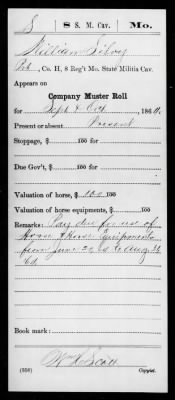 S | 8 S. M. Cav. | Mo.
William
Pvt, Co. H, 8 Reg't Mo. State Militia Cav.
Appears on
Company Muster Roll
for Sept & Oct, 186
Present or absent Present
Stoppage, $ 100 for
Due Gov't, $ 100 for
Valuation of horse, $ 100
Valuation of horse equipments, $ 100
Remarks: Pay due for use of
Horse & Horse Equipments
from June 30 to Aug 31
64.
Book mark:
Scott
(358) Copyist.